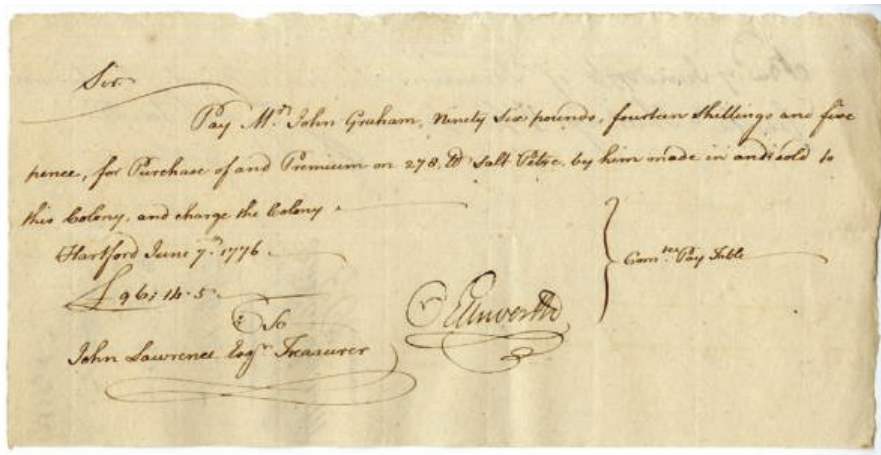 Sir
Pay Mr. John Graham, Ninety Six pounds, fourteen Shillings and five
pence, for Purchase of and Premium on 278, lb Salt Petre, by him made in and sold to
this Colony, and charge the Colony
Hartford June 7th. 1776
£96:14.5
O Ellsworth
Comtee. Pay Table
To
John Lawrence Esqr. Treasurer